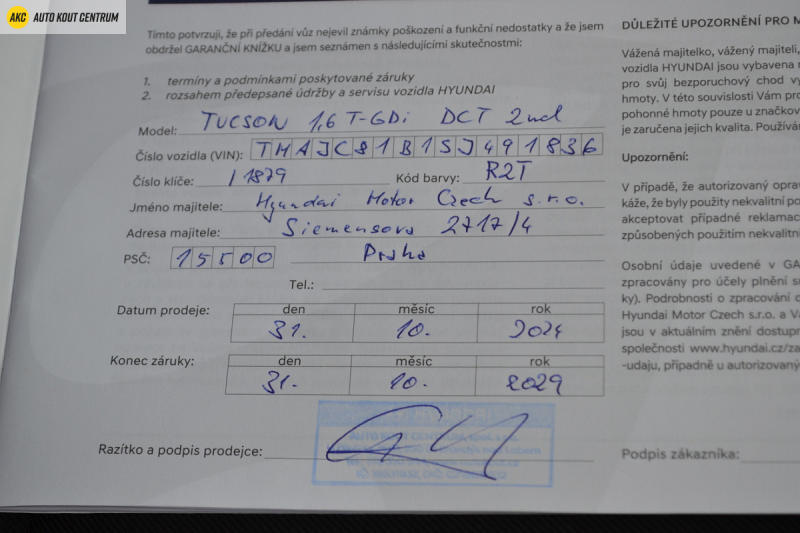 AKC AUTO KOUT CENTRUM
Tímto potvrzuji, že při předání vůz nejevil známky poškození a funkční nedostatky a že jsem
obdržel GARANČNÍ KNÍŽKU a jsem seznámen s následujícími skutečnostmi:
1. termíny a podmínkami poskytované záruky
2. rozsahem předepsané údržby a servisu vozidla HYUNDAI
Model: TUCSON 1,6 T-GDi DCT 2wd
Číslo vozidla (VIN): TMAJC81B1SJ491836
Číslo klíče: / 1879 Kód barvy: R2T
Jméno majitele: Hyundai Motor Czech s.r.o.
Adresa majitele: Siemensova 2717/4
PSČ: 15500 Praha
Tel.:
Datum prodeje: den měsíc rok
31. 10. 2024
Konec záruky: den měsíc rok
31. 10. 2029
AUTO KOUT CENTRUM, spol. s r.o.
Razítko a podpis prodejce:
DŮLEŽITÉ UPOZORNĚNÍ PRO M
Vážená majitelko, vážený majiteli,
vozidla HYUNDAI jsou vybavena
pro svůj bezporuchový chod vy
hmoty. V této souvislosti Vám pro
pohonné hmoty pouze u značkov
je zaručena jejich kvalita. Používán
Upozornění:
V případě, že autorizovaný oprav
káže, že byly použity nekvalitní po
akceptovat případné reklamac
způsobených použitím nekvalitn
Osobní údaje uvedené v GA
zpracovány pro účely plnění s
ky). Podrobnosti o zpracování o
Hyundai Motor Czech s.r.o. a V
jsou v aktuálním znění dostupn
společnosti www.hyundai.cz/za
-udaju, případně u autorizovaný
Podpis zákazníka: